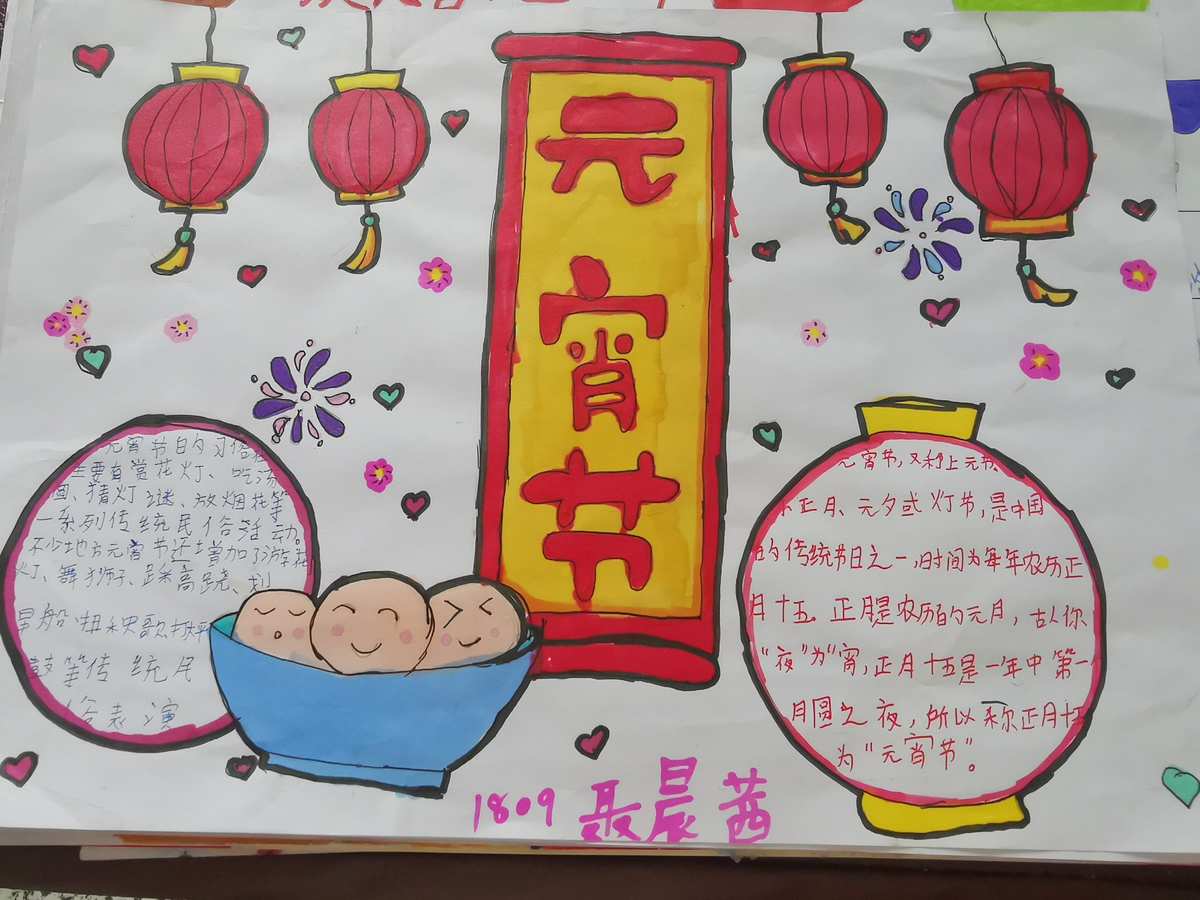 元
宵
节
元宵节日的习俗
主要有赏花灯、吃汤
圆、猜灯谜、放烟花等
一系列传统民俗活动。
不少地方元宵节还增加了游花
灯、舞狮、踩高跷、划
旱船 扭秧歌 打
鼓等传统民
俗表演
元宵节,又称上元节、
小正月、元夕或灯节,是中国
的传统节日之一,时间为每年农历正
月十五 正月是农历的元月,古人你
“夜”为“宵,正月十五是一年中第一
月圆之夜,所以称正月十五
为“元宵节”。
1809 聂晨茜